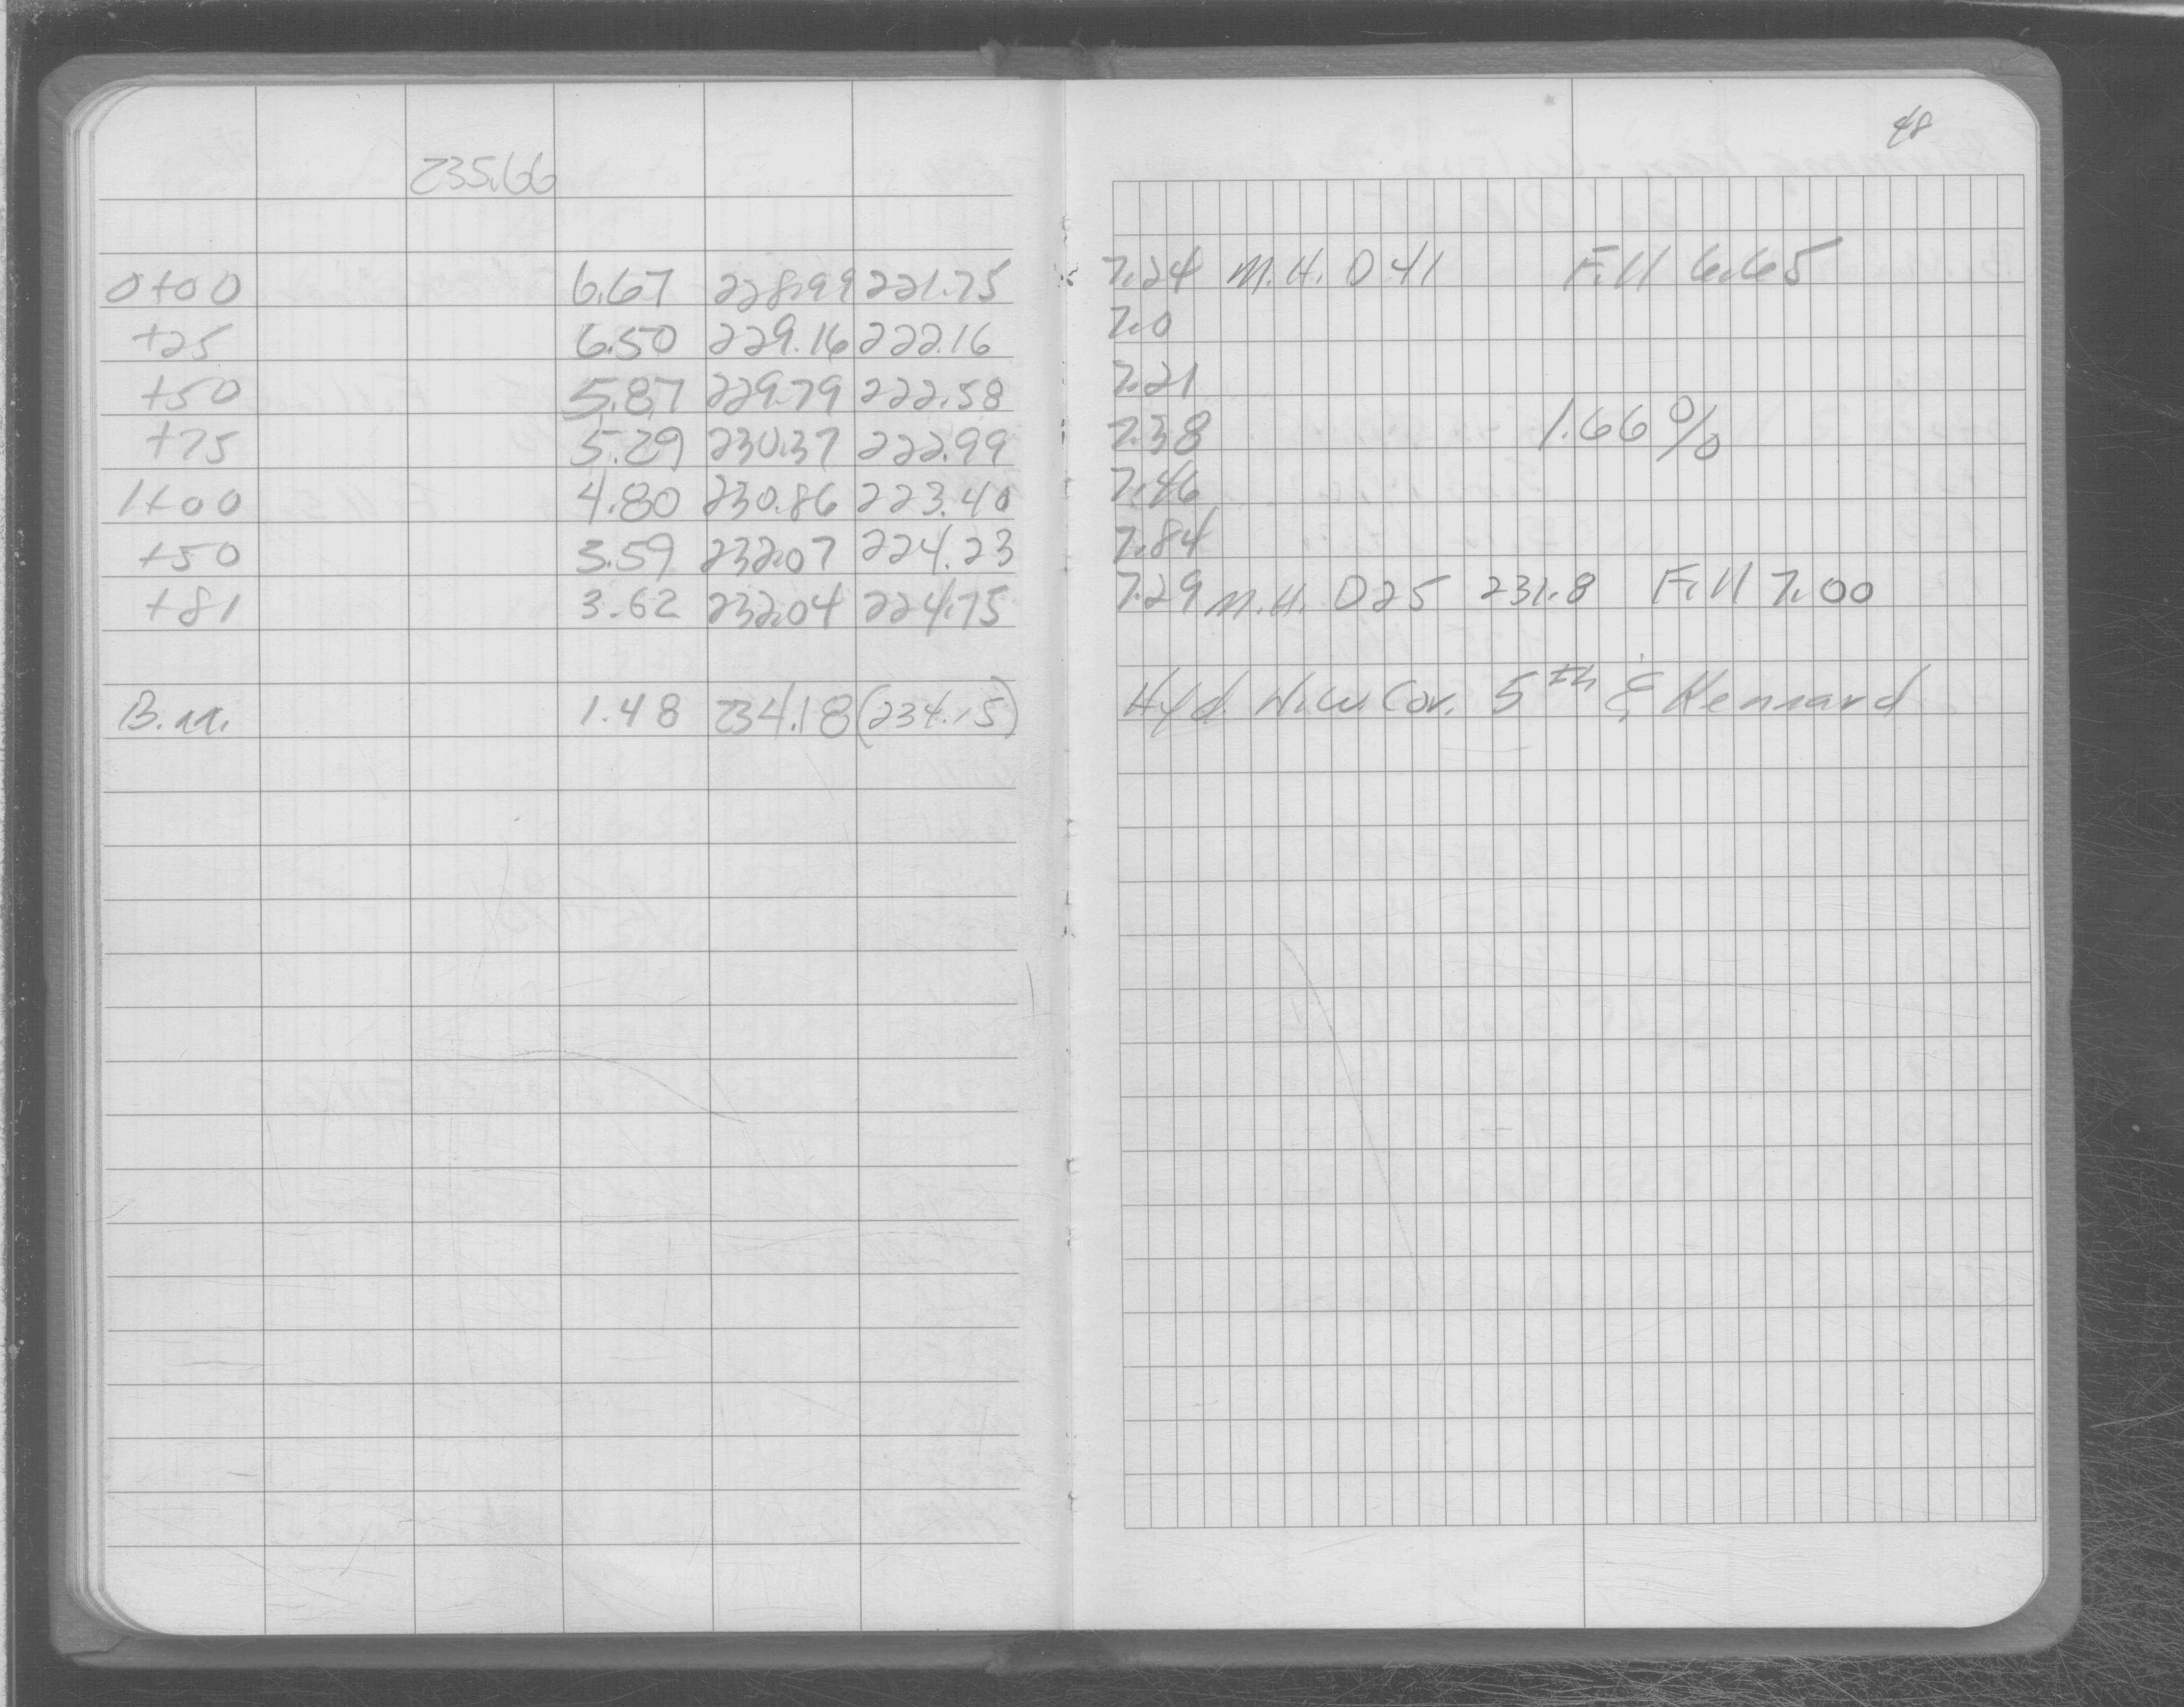 48
235.66
0+00 6.67 228.99 221.75 7.24 M.H. D 41 Fill 6.65
+25 6.50 229.16 222.16 7.0
+50 5.87 229.79 222.58 7.21
+75 5.29 230.37 222.99 7.38 1.66%
1+00 4.80 230.86 223.40 7.46
+50 3.59 232.07 224.23 7.84
+81 3.62 232.04 224.75 7.29 M.H. D25 231.8 Fill 7.00
B.M. 1.48 234.18 (234.15) Hyd. N.W. Cor. 5th & Kennard